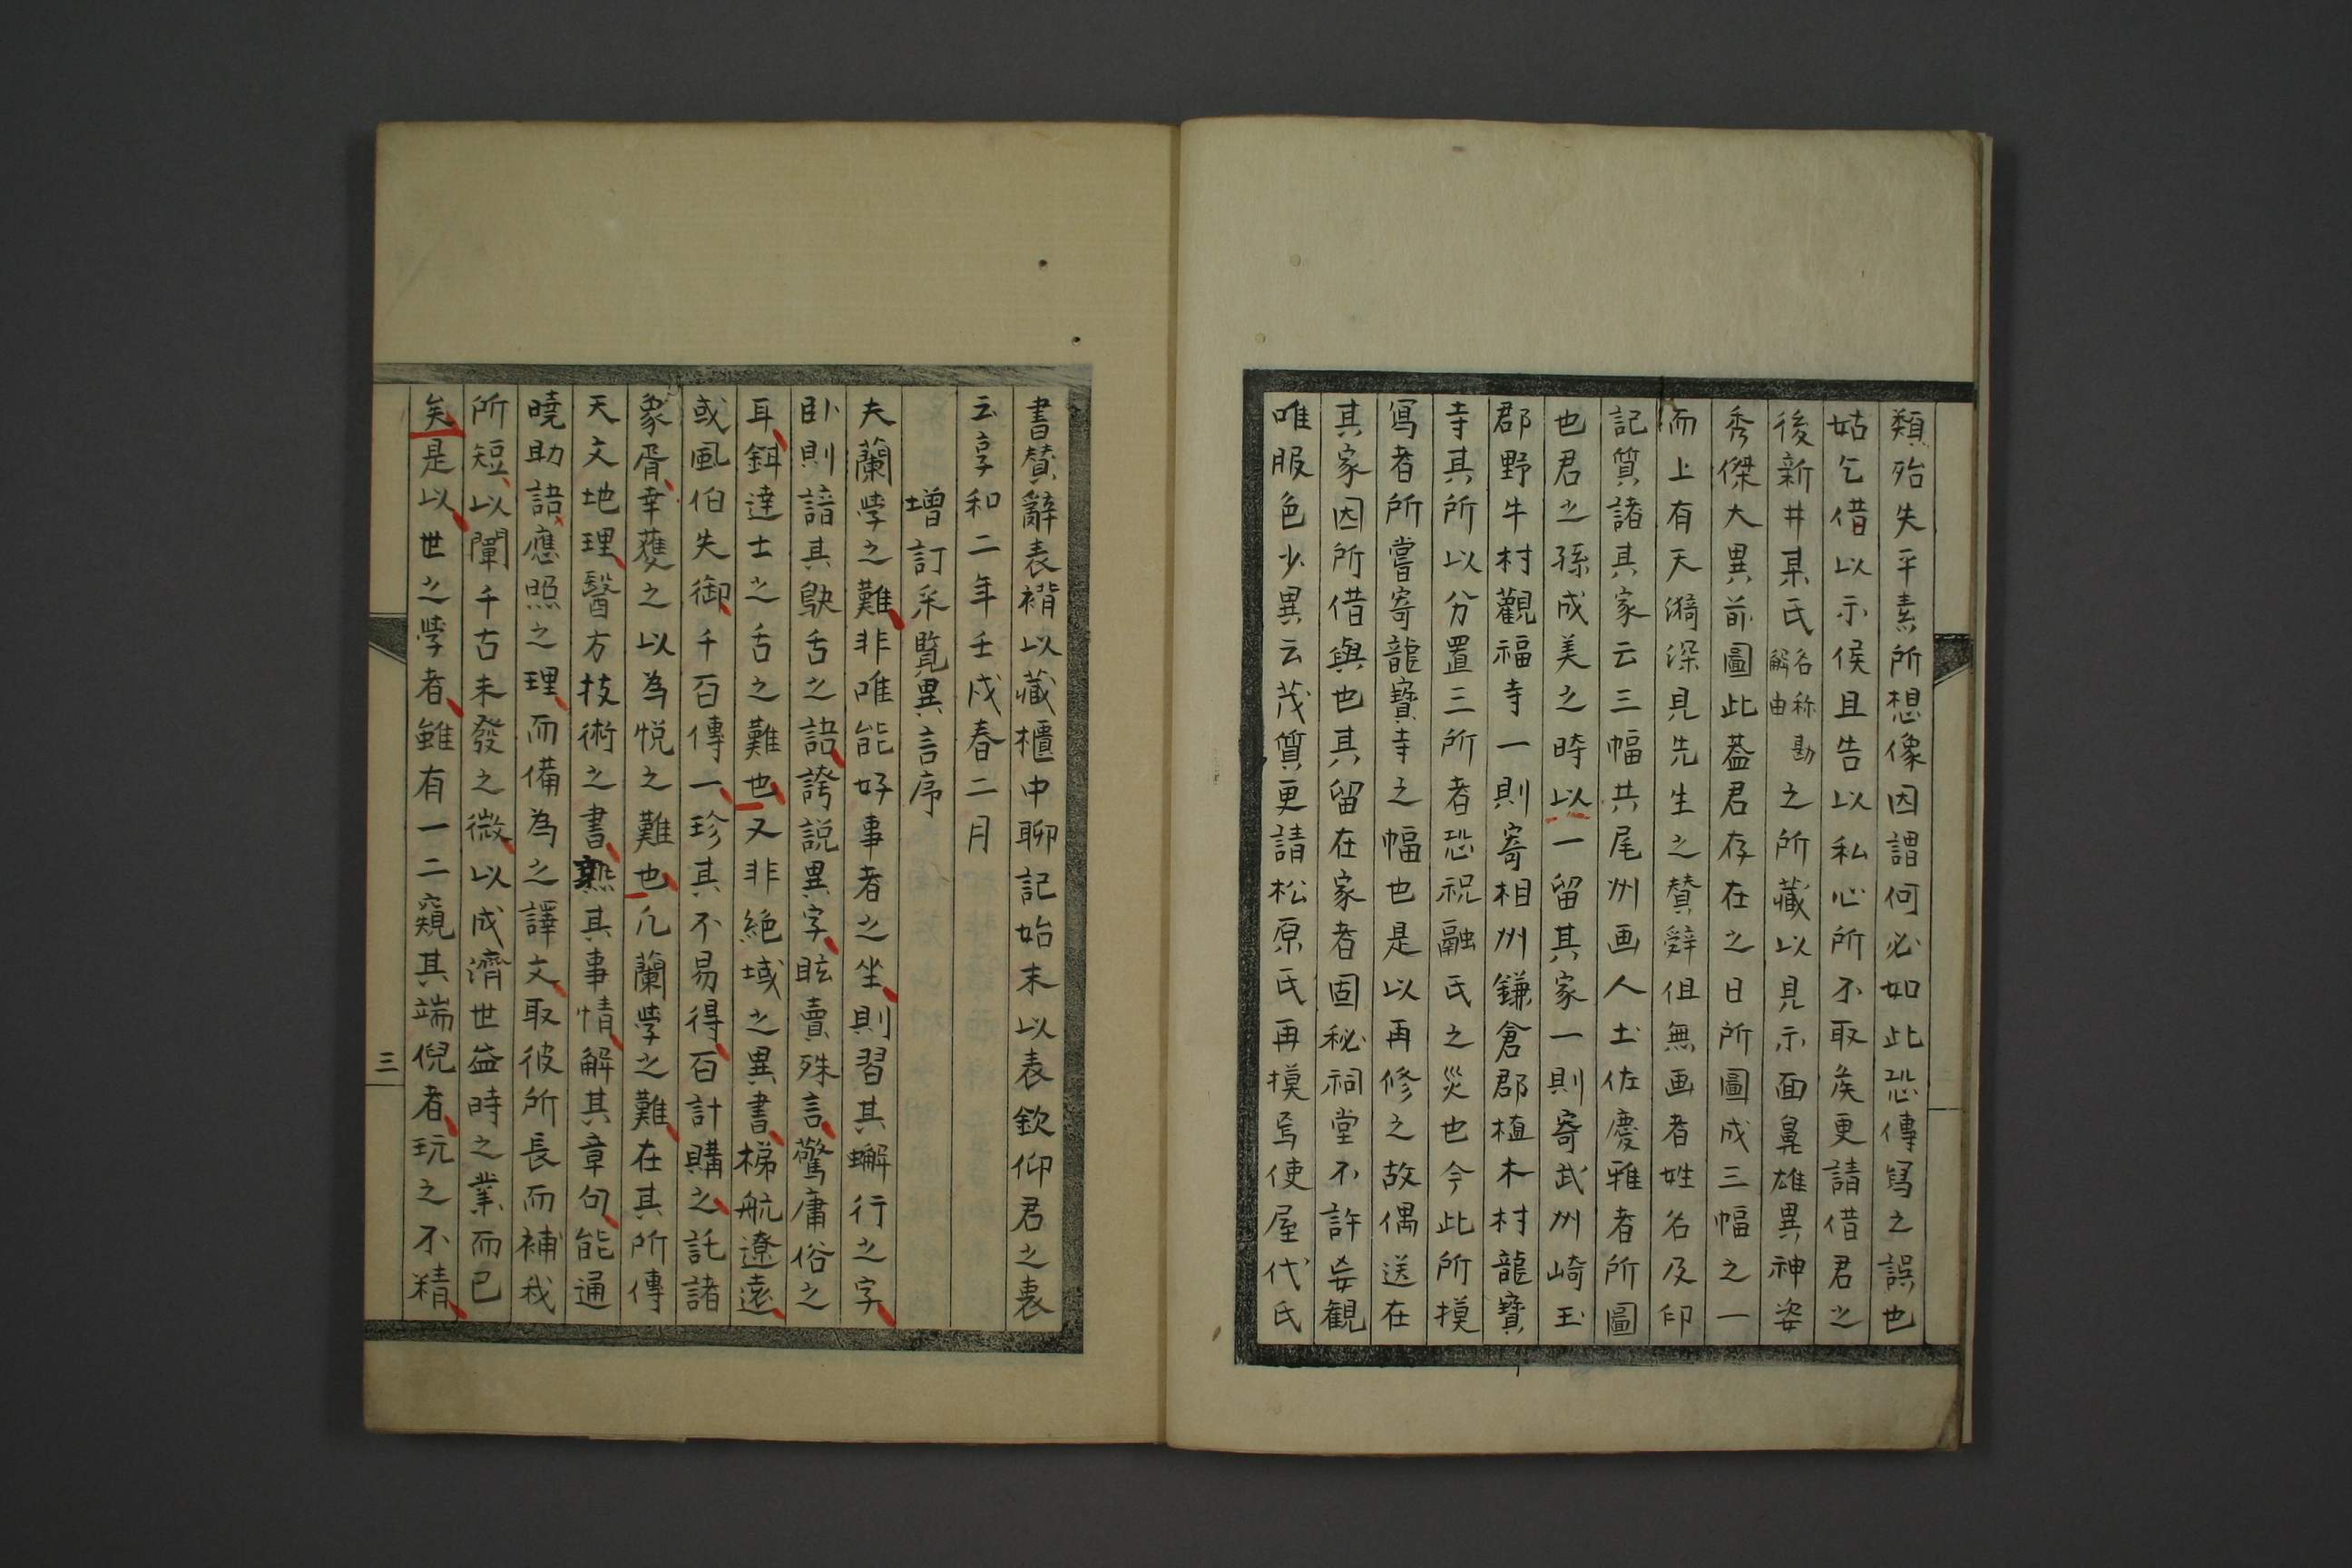 類殆失平素所想像因謂何必如此恐傳写之誤也
姑乞借以示侯且告以私心所不取矦更請借君之
後新井某氏名称勘解由之所藏以見示面鼻雄異神姿
秀傑大異前圖此蓋君存在之日所圖成三幅之一
而上有天漪深見先生之賛辞但無画者姓名及印
記質諸其家云三幅共尾州画人土佐慶雅者所圖
也君之孫成美之時以一留其家一則寄武州崎玉
郡野牛村觀福寺一則寄相州鎌倉郡植木村龍寶
寺其所以分置三所者恐祝融氏之災也今此所摸
寫者所嘗寄龍寶寺之幅也是以再修之故偶送在
其家因所借與也其留在家者固秘祠堂不許妄観
唯服色少異云茂質更請松原氏再摸焉使屋代氏
書賛辭表褙以藏櫃中聊記始末以表欽仰君之裏
云享和二年壬戌春二月
增訂采覧異言序
夫蘭学之難非唯能好事者之坐則習其蠏行之字
臥則諳其鴃舌之語誇説異字眩賣殊言驚庸俗之
耳鉺達士之舌之難也又非絶域之異書梯航遼遠
或風伯失御千百傳一珍其不易得百計購之託諸
象胥幸獲之以為悦之難也凢蘭学之難在其所傳
天文地理醫方技術之書熟其事情解其章句能通
曉助語應照之理而備為之譯文取彼所長而補我
所短以闡千古未發之微以成濟世益時之業而已
矣是以世之学者雖有一二窺其端倪者玩之不精
三